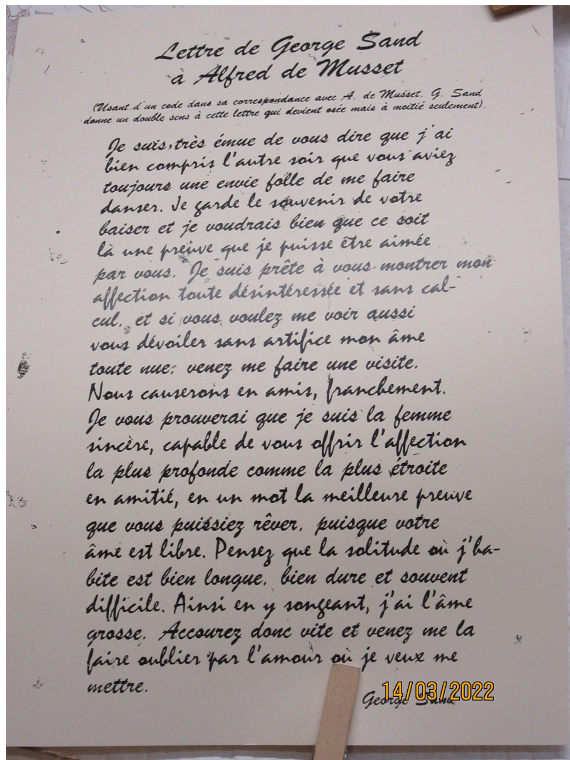 Lettre de George Sand
à Alfred de Musset
(Usant d'un code dans sa correspondance avec A. de Musset, G. Sand
donne un double sens à cette lettre qui devient osée mais à moitié seulement).
Je suis très émue de vous dire que j'ai
bien compris l'autre soir que vous aviez
toujours une envie folle de me faire
danser. Je garde le souvenir de votre
baiser et je voudrais bien que ce soit
là une preuve que je puisse être aimée
par vous. Je suis prête à vous montrer mon
affection toute désintéressée et sans cal-
cul, et si vous voulez me voir aussi
vous dévoiler sans artifice mon âme
toute nue: venez me faire une visite.
Nous causerons en amis, franchement.
Je vous prouverai que je suis la femme
sincère, capable de vous offrir l'affection
la plus profonde comme la plus étroite
en amitié, en un mot la meilleure preuve
que vous puissiez rêver, puisque votre
âme est libre. Pensez que la solitude où j'ha-
bite est bien longue, bien dure et souvent
difficile. Ainsi en y songeant, j'ai l'âme
grosse. Accourez donc vite et venez me la
faire oublier par l'amour où je veux me
mettre.
George Sand
14/03/2022